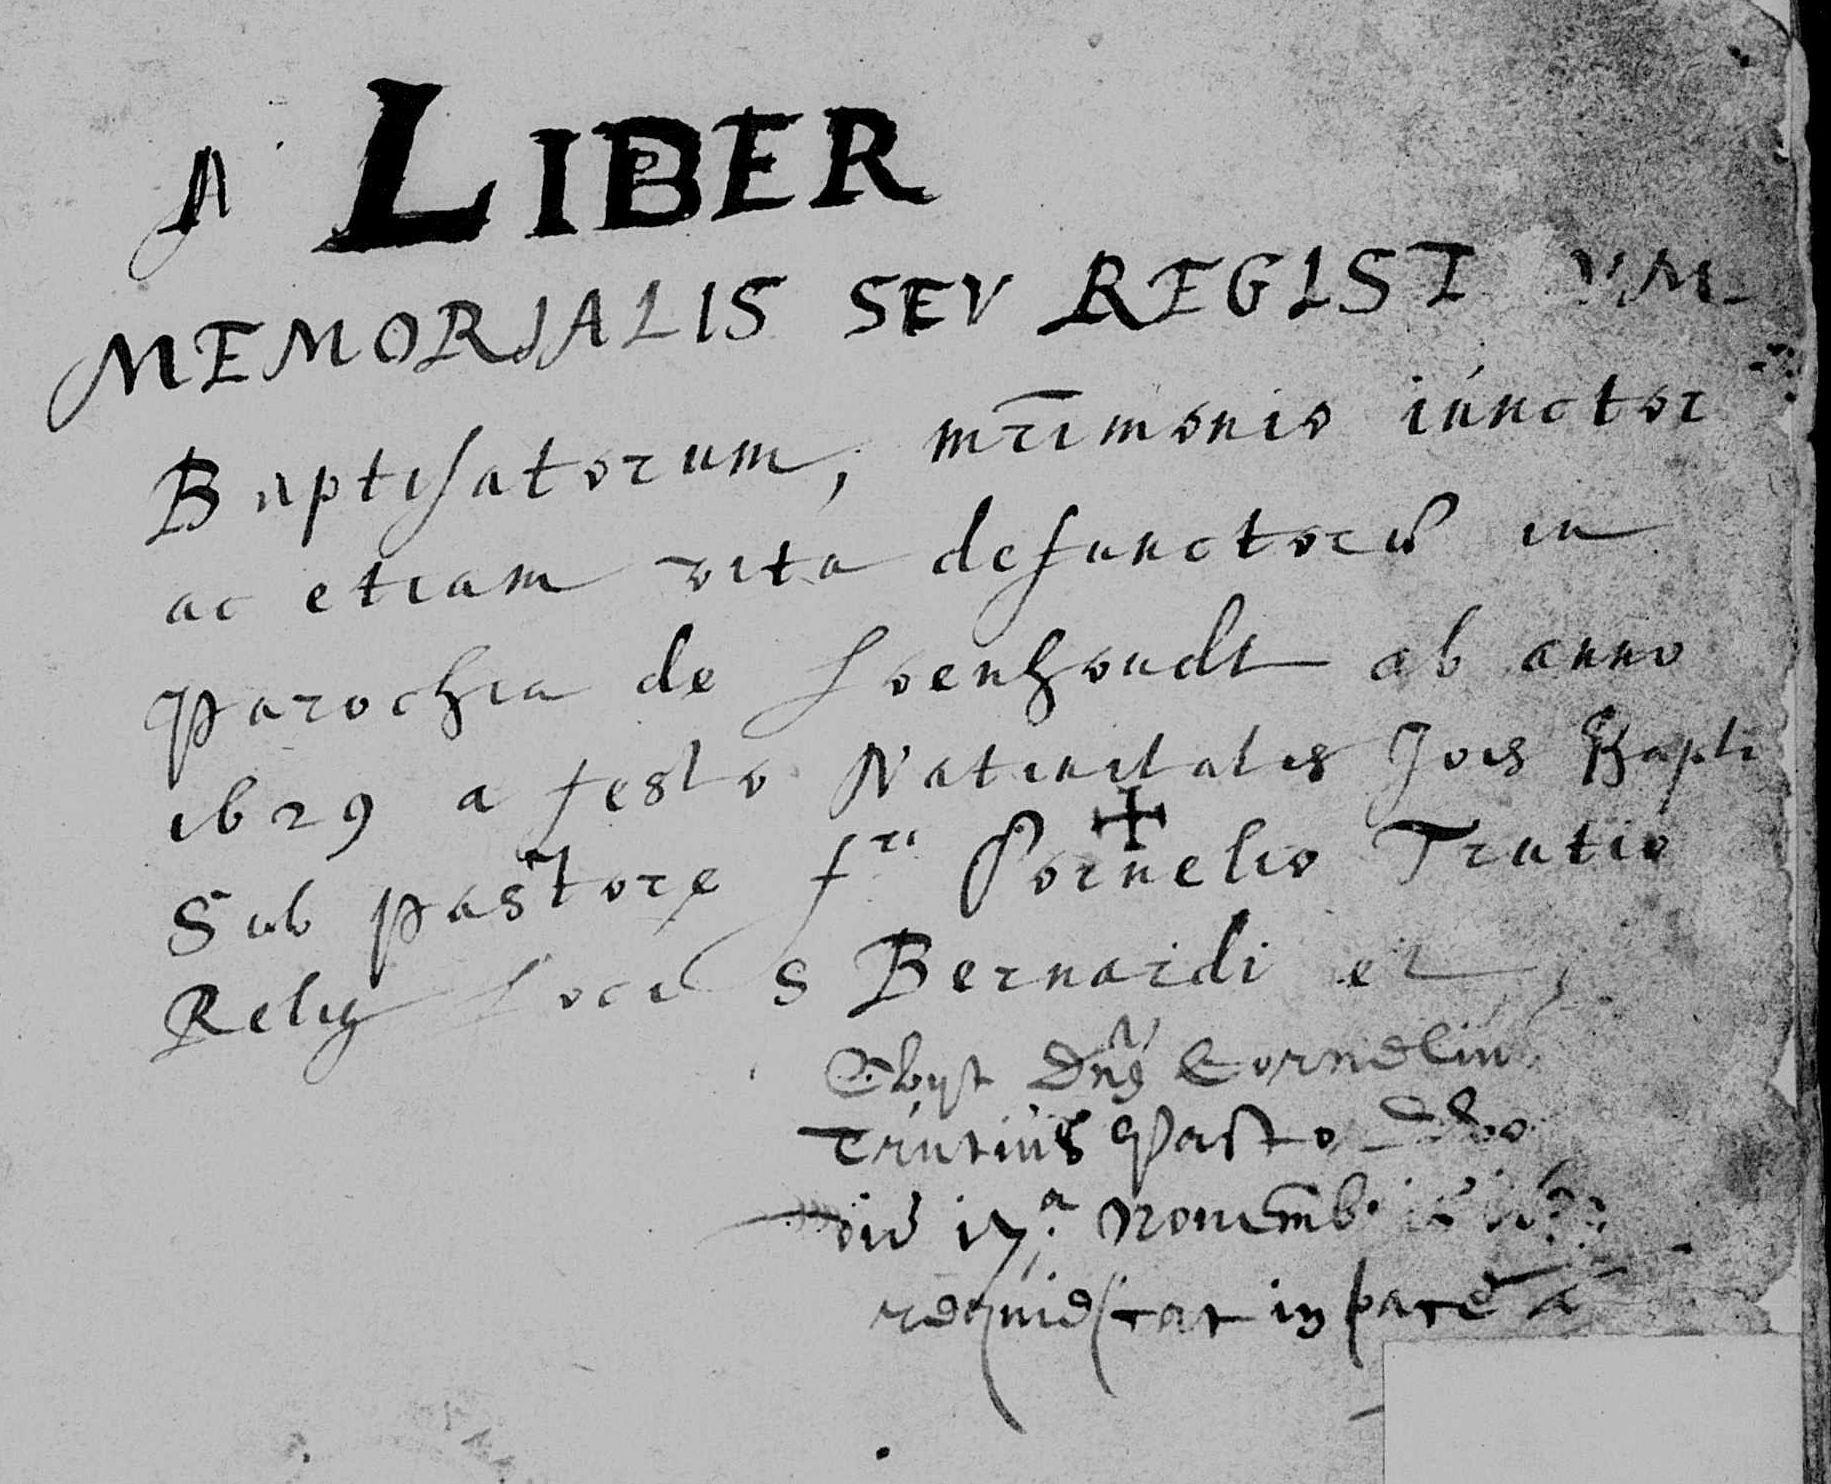 A LIBER
MEMORIALIS SEV REGIST UM
Baptisatorum, mr̄imonio iunctor
ac etiam vita defunctorū in
parochia de Loenhoudt ab anno
1629 a festo Natiuitatis Jois Bapti
Sub pastore f.ri Cornelio Trutio
Relig Loci S Bernardi et
Obijt Dn̄s Cornelius
Trutius Pasto
die 17.a Nouemb.
requiescat in pace a